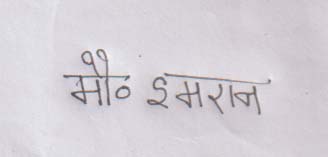 मौ० इमरान